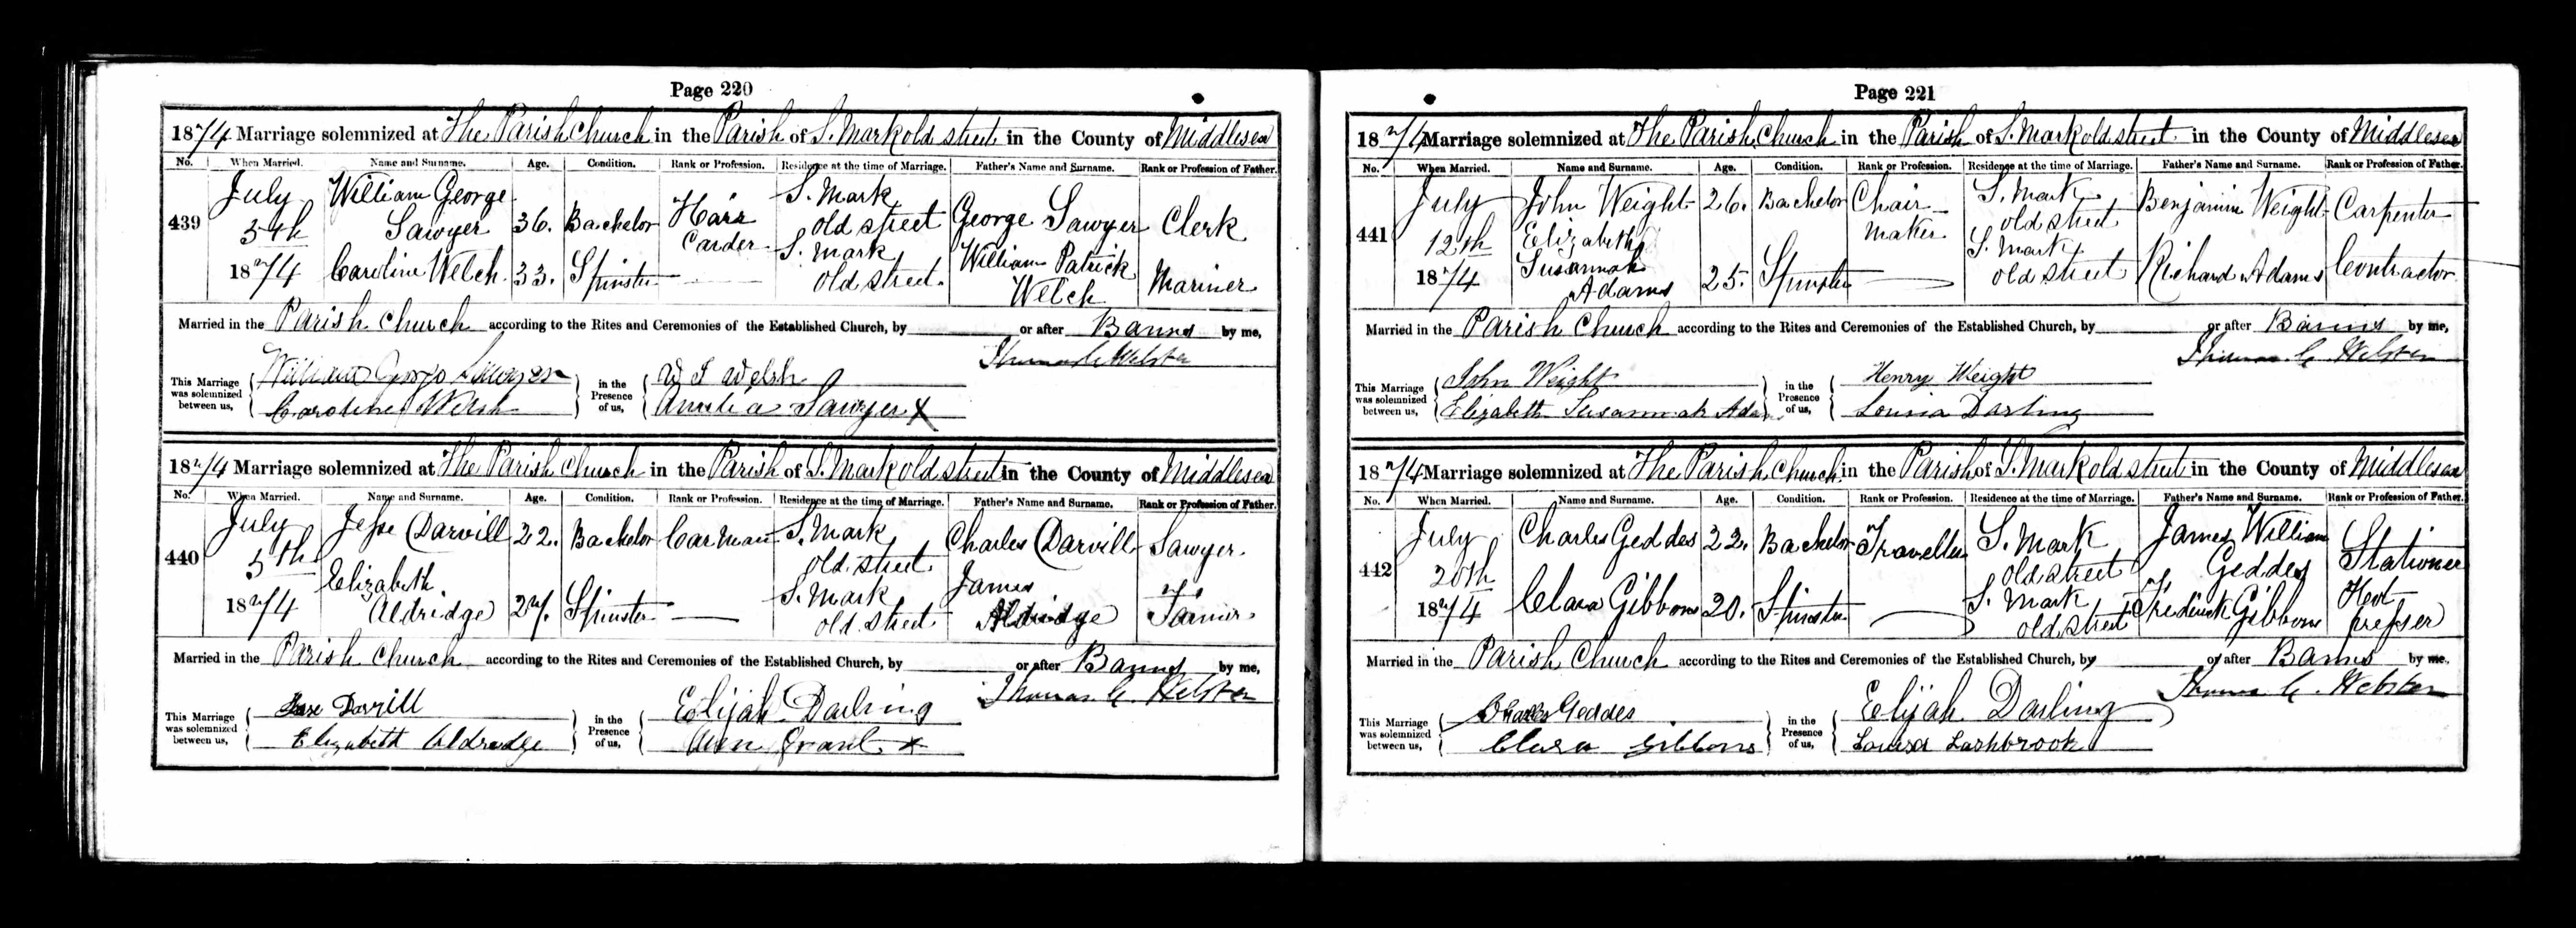 Page 220
1874 Marriage solemnized at The Parish Church in the Parish of S. Mark old street in the County of Middlesex
No. When Married. Name and Surname. Age. Condition. Rank or Profession. Residence at the time of Marriage. Father's Name and Surname. Rank or Profession of Father.
439 July 5th 1874 William George Sawyer 36. Bachelor Hair Carder S. Mark old street George Sawyer Clerk
Caroline Welch. 33. Spinster S. Mark old street. William Patrick Welch Mariner
Married in the Parish Church according to the Rites and Ceremonies of the Established Church, by or after Banns by me,
Thomas C. Webster
This Marriage was solemnized between us, William George Sawyer in the Presence of us, W Welsh
Caroline Welsh Amelia Sawyer X
1874 Marriage solemnized at The Parish Church in the Parish of S. Mark old street in the County of Middlesex
No. When Married. Name and Surname. Age. Condition. Rank or Profession. Residence at the time of Marriage. Father's Name and Surname. Rank or Profession of Father.
440 July 5th 1874 Jesse Darvill 22. Bachelor Carman S. Mark old street Charles Darvill Sawyer.
Elizabeth Aldridge 27. Spinster S. Mark old street James Aldridge
Married in the Parish Church according to the Rites and Ceremonies of the Established Church, by or after Banns by me,
Thomas C. Webster
This Marriage was solemnized between us, Darvill in the Presence of us, Elijah Darling
Elizabeth Aldredge Grant X
Page 221
1874 Marriage solemnized at The Parish Church in the Parish of S. Mark old street in the County of Middlesex
No. When Married. Name and Surname. Age. Condition. Rank or Profession. Residence at the time of Marriage. Father's Name and Surname. Rank or Profession of Father.
441 July 12th 1874 John Weight 26. Bachelor Chair Maker S. Mark old street Benjamin Weight Carpenter
Elizabeth Susannah Adams 25. Spinster S. Mark old street Richard Adams Contractor
Married in the Parish Church according to the Rites and Ceremonies of the Established Church, by or after Banns by me,
Thomas C. Webster
This Marriage was solemnized between us, John Weight in the Presence of us, Henry Weight
Elizabeth Susannah Adams Louisa Darling
1874 Marriage solemnized at The Parish Church in the Parish of S. Mark old street in the County of Middlesex
No. When Married. Name and Surname. Age. Condition. Rank or Profession. Residence at the time of Marriage. Father's Name and Surname. Rank or Profession of Father.
442 July 20th 1874 Charles Geddes 22. Bachelor Traveller S. Mark old street James William Geddes Stationer
Clara Gibbons 20. Spinster S. Mark old street Frederick Gibbons Hot presser
Married in the Parish Church according to the Rites and Ceremonies of the Established Church, by or after Banns by me,
Thomas C. Webster
This Marriage was solemnized between us, Charles Geddes in the Presence of us, Elijah Darling
Clara Gibbons Louisa Lashbrook